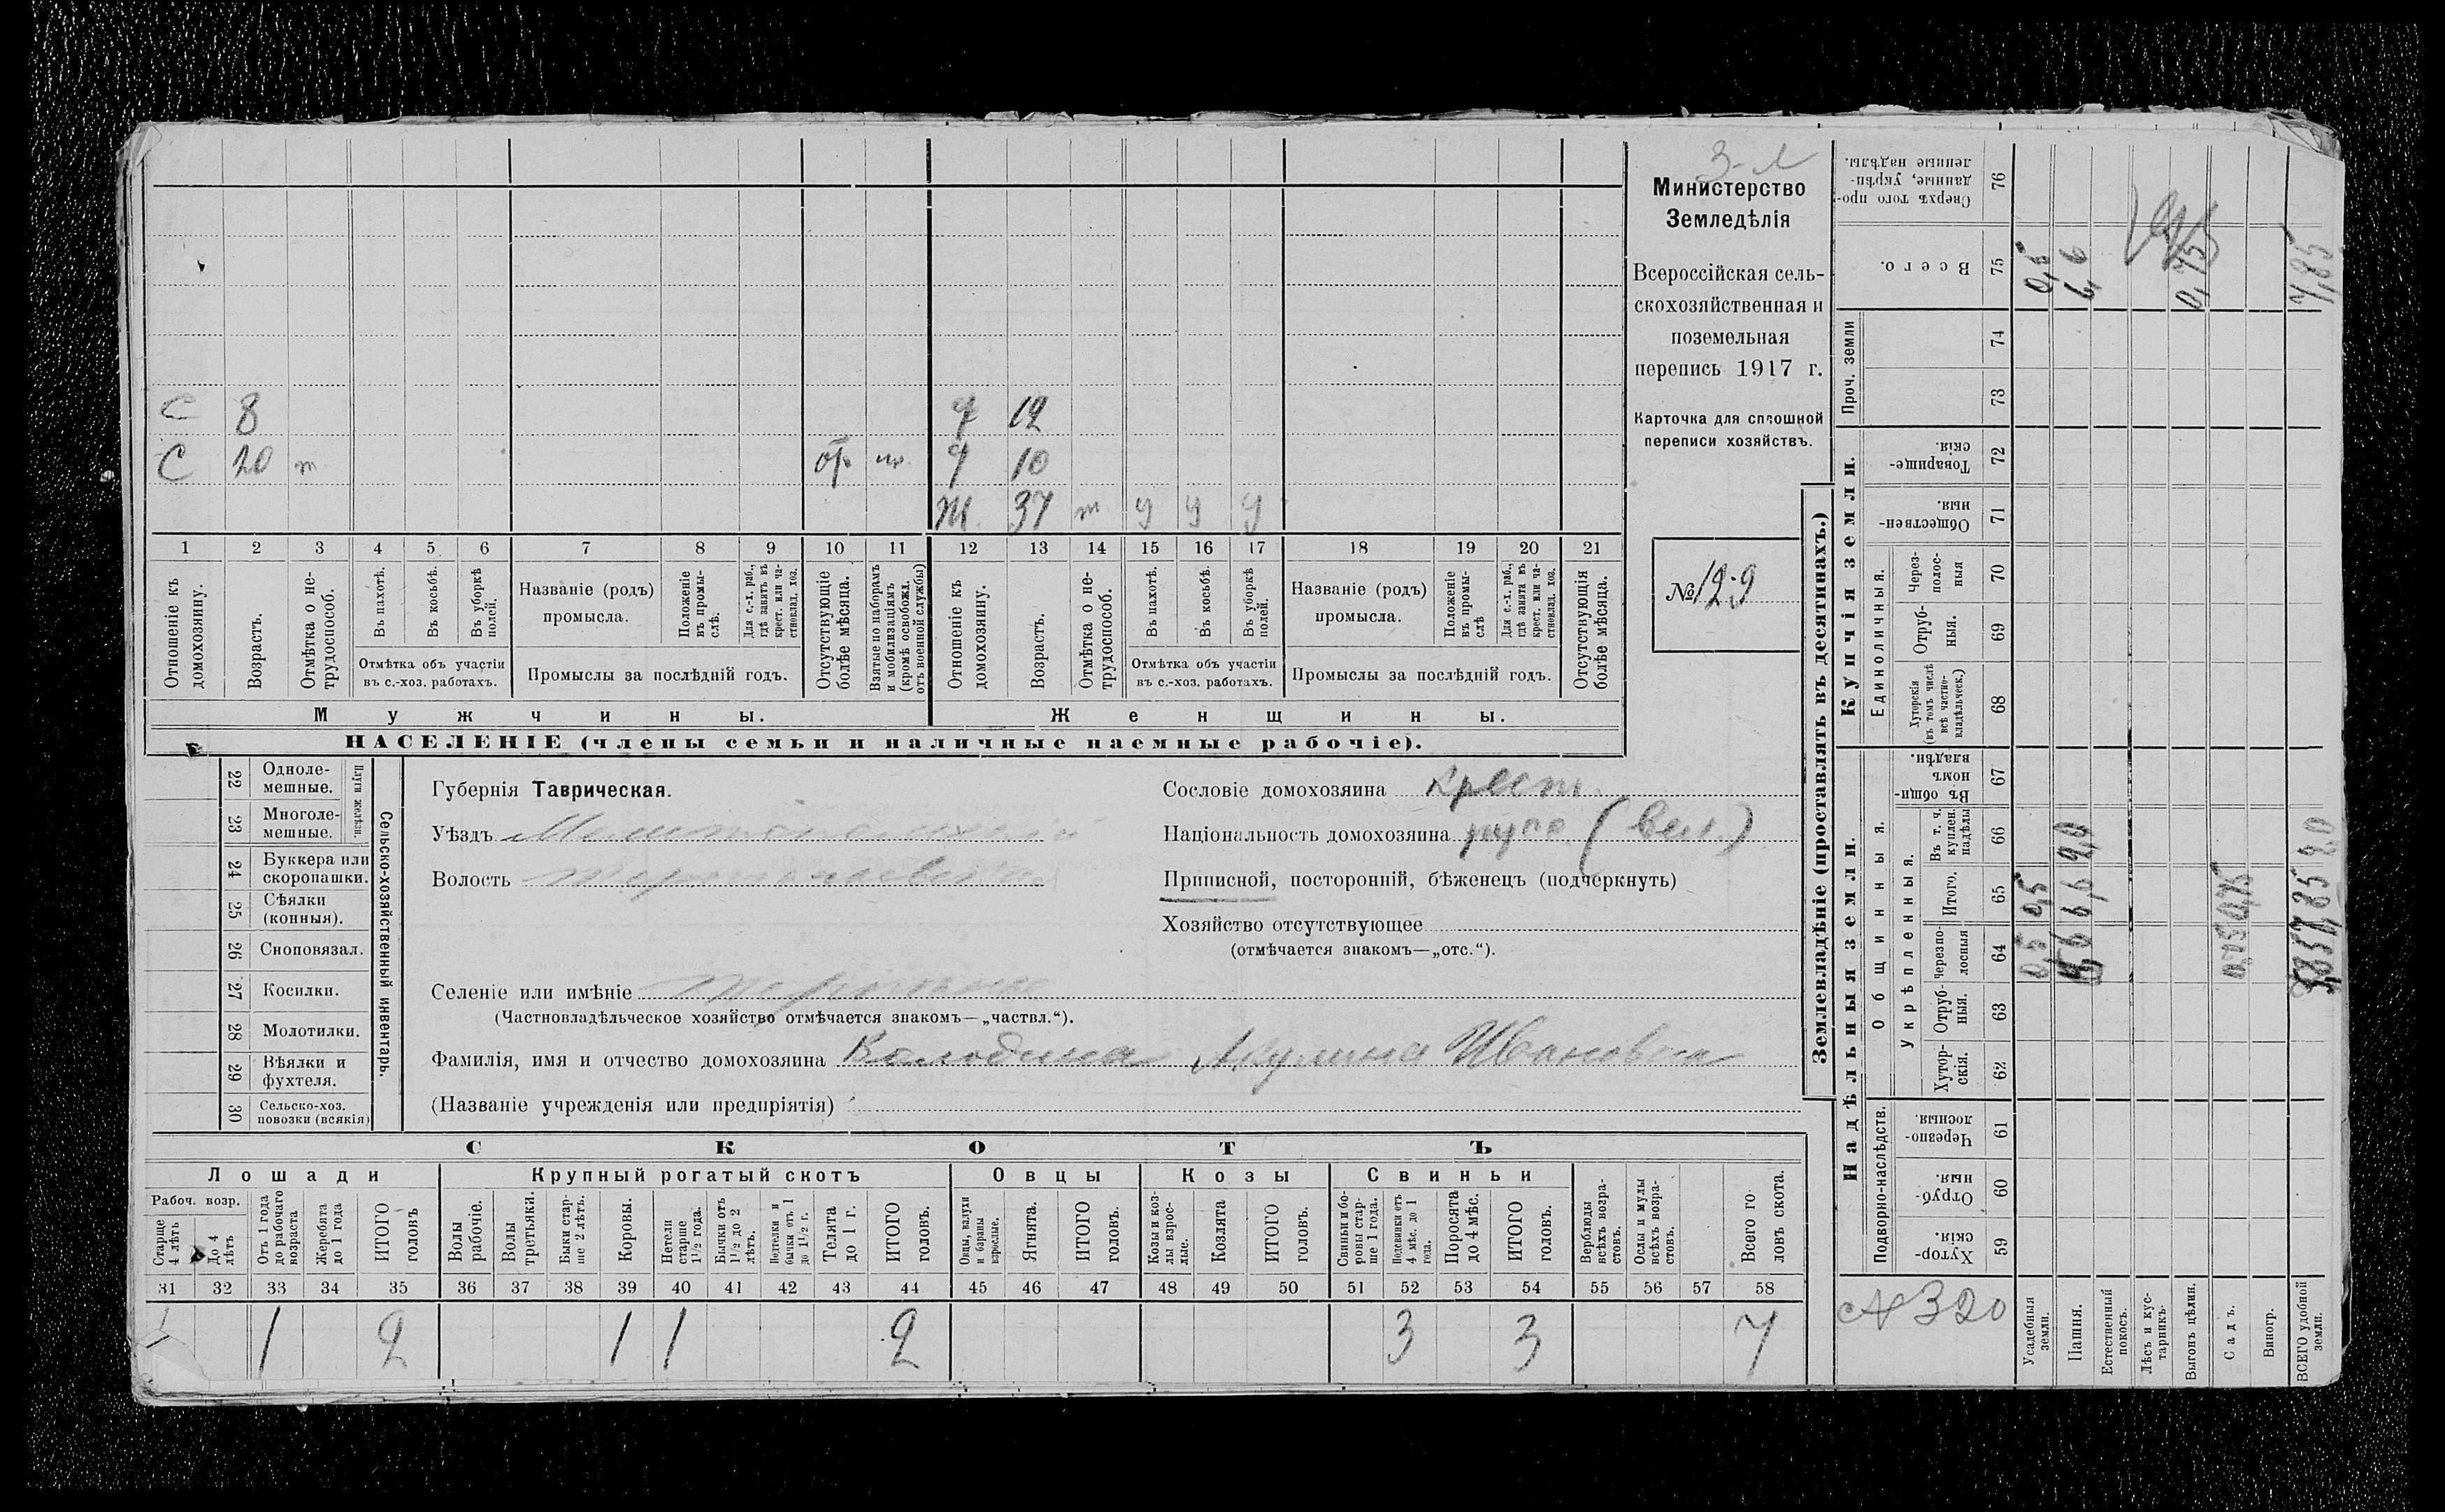 3-л
Министерство
Земледѣлія
Всероссійская сель-
скохозяйственная и
поземельная
перепись 1917 г.
Карточка для сплошной
переписи хозяйствъ.
№ 129
С 8 12
С 20 т 10
Ж. 37 т у у у
1 2 3 4 5 6 7 8 9 10 11 12 13 14 15 16 17 18 19 20 21
Отношеніе къ домохозяину.
Возрастъ.
Отмѣтка о не-трудоспособ.
Въ пахотѣ.
Въ косьбѣ.
Въ уборкѣ полей.
Отмѣтка объ участіи
въ с.-хоз. работахъ.
Названіе (родъ)
промысла.
Положеніе въ промы-слѣ.
Для с.-х. раб., гдѣ занятъ въ крест. или ча-стновлад. хоз.
Промыслы за послѣдній годъ.
Отсутствующіе болѣе мѣсяца.
Взятые по наборамъ и мобилизаціямъ (кромѣ освобожд. отъ военной службы)
Отношеніе къ домохозяину.
Возрастъ.
Отмѣтка о не-трудоспособ.
Въ пахотѣ.
Въ косьбѣ.
Въ уборкѣ полей.
Отмѣтка объ участіи
въ с.-хоз. работахъ.
Названіе (родъ)
промысла.
Положеніе въ промы-слѣ
Для с.-х. раб., гдѣ занята въ крест. или ча-стновлад. хоз.
Промыслы за послѣдній годъ.
Отсутствующія болѣе мѣсяца.
Мужчины. Женщины.
НАСЕЛЕНІЕ (члены семьи и наличные наемные рабочіе).
22 Одноле-мешные.
23 Многоле-мешные.
Плуги желѣзн.
24 Буккера или скоропашки.
25 Сѣялки (конныя).
26 Сноповязал.
27 Косилки.
28 Молотилки.
29 Вѣялки и фухтеля.
30 Сельско-хоз. повозки (всякія)
Сельско-хозяйственный инвентарь.
Губернія Таврическая.
Уѣздъ Мелитопольскій
Волость
Селеніе или имѣніе
(Частновладѣльческое хозяйство отмѣчается знакомъ—„частвл.“).
Фамилія, имя и отчество домохозяина Колодина Акулина Ивановна
(Названіе учрежденія или предпріятія)
Сословіе домохозяина крест.
Національность домохозяина русс. (вел.)
Приписной, посторонній, бѣженецъ (подчеркнуть)
Хозяйство отсутствующее
(отмѣчается знакомъ—„отс.“).
СКОТЪ
Лошади Крупный рогатый скотъ Овцы Козы Свиньи
Рабоч. возр.
Старше 4 лѣтъ
До 4 лѣтъ
Отъ 1 года до рабочаго возраста
Жеребята до 1 года
ИТОГО головъ
Волы рабочіе.
Волы третьяки.
Быки стар-ше 2 лѣтъ.
Коровы.
Нетели старше 1 1/2 года.
Бычки отъ 1 1/2 до 2 лѣтъ.
Подтелки и бычки отъ 1 до 1 1/2 г.
Телята до 1 г.
ИТОГО головъ.
Овцы, валухи и бараны взрослые.
Ягнята.
ИТОГО головъ.
Козы и коз-лы взрос-лые.
Козлята
ИТОГО головъ.
Свиньи и бо-ровы стар-ше 1 года.
Подсвинки отъ 4 мѣс. до 1 года.
Поросята до 4 мѣс.
ИТОГО головъ.
Верблюды всѣхъ возра-стовъ.
Ослы и мулы всѣхъ возра-стовъ.
Всего го-ловъ скота.
31 32 33 34 35 36 37 38 39 40 41 42 43 44 45 46 47 48 49 50 51 52 53 54 55 56 57 58
1 1 2 1 1 2 3 3 7
Землевладѣніе (проставлять въ десятинахъ.)
Надѣльныя земли. Купчія земли. Проч. земли
Подворно-наслѣдств. Общинныя. Укрѣпленныя. Единоличныя.
Сверхъ того про-данные, укрѣп-ленные надѣлы. 76
Всего. 75
74
73
Товарище-скія. 72
Обществен-ныя. 71
Через-полос-ныя 70
Отруб-ныя. 69
Хуторскія (въ томъ числѣ всѣ частно-владѣльческ.) 68
Въ общи-номъ владѣн. 67
Въ т. ч. куплен. надѣлы 66
Итого. 65
Черезпо-лосныя 64
Отруб-ныя. 63
Хутор-скія. 62
Черезпо-лосныя 61
Отруб-ныя 60
Хутор-скія. 59
№ 320
Усадебныя земли. 0,5 0,5 0,5
Пашня. 6,6 2,0 6,6
Естественный покосъ.
Лѣсъ и кус-тарникъ.
Выгонъ цѣлин. 0,75
Садъ. 0,75
Виногр.
ВСЕГО удобной земли. 2,0 7,85